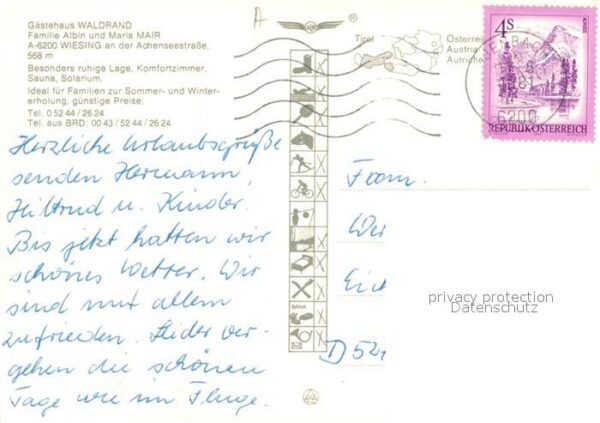 Gästehaus WALDRAND
Familie Albin und Maria MAIR
A-6200 WIESING an der Achenseestraße,
568 m
Besonders ruhige Lage, Komfortzimmer,
Sauna, Solarium.
Ideal für Familien zur Sommer- und Winter-
erholung, günstige Preise.
Tel. 0 52 44 / 26 24
Tel. aus BRD: 00 43 / 52 44 / 26 24
Herzliche Urlaubsgrüße
senden Hermann,
Hiltrud u. Kinder.
Bis jetzt hatten wir
schönes Wetter. Wir
sind mit allem
zufrieden. Leider ver-
gehen die schönen
Tage wie im Fluge.
A
Tirol
Österreich
Austria
Autriche
BANK
4S
REPUBLIK ÖSTERREICH
6200
Fam.
Wer
Eich
D 52
privacy protection
Datenschutz